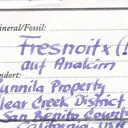 ineral/Fossil:
Fresnoitx (
auf Anakim
ndort:
unnila Property
lear Creek District
San Benito Count
California